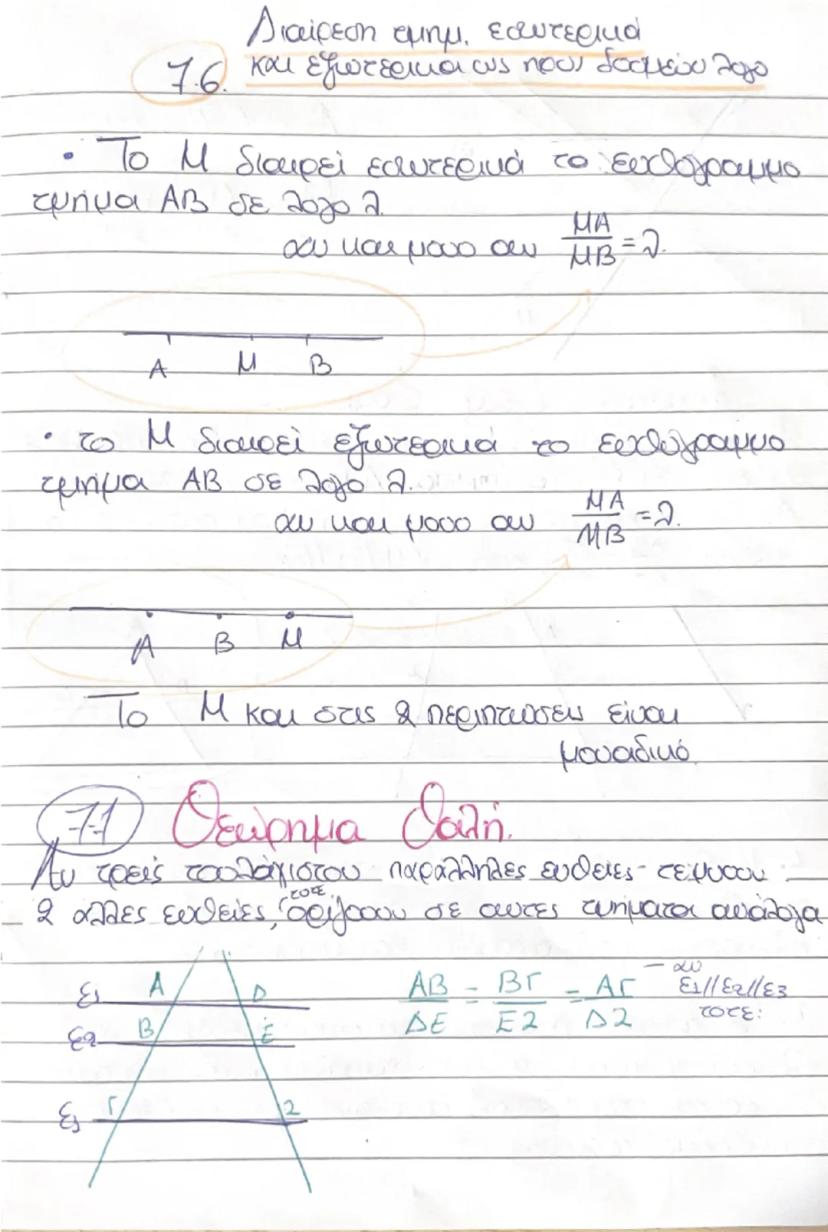 Διαίρεση τμημ. εσωτερικά
7.6. και εξωτερικά ως προς δοσμένο λόγο
• Το Μ διαιρεί εσωτερικά το ευθύγραμμο
τμήμα ΑΒ σε λογο λ.
αν και μονο αν ΜΑ/ΜΒ = λ.
Α Μ Β
• το Μ διαιρεί εξωτερικά το ευθύγραμμο
τμήμα ΑΒ σε λογο λ.
αν και μονο αν ΜΑ/ΜΒ = λ.
Α Β Μ
Το Μ και στις 2 περιπτώσεις είναι
μοναδικό.
7.7 Θεώρημα Θαλή.
Αν τρείς τουλάχιστον παράλληλες ευθείες τέμνουν
2 άλλες ευθείες, τοτε ορίζουν σε αυτες τμήματα ανάλογα
ε1 Α D
ε2 Β Ε
ε3 Γ Ζ
ΑΒ/ΔΕ = ΒΓ/ΕΖ = ΑΓ/ΔΖ
— αν
ε1//ε2//ε3
τοτε: